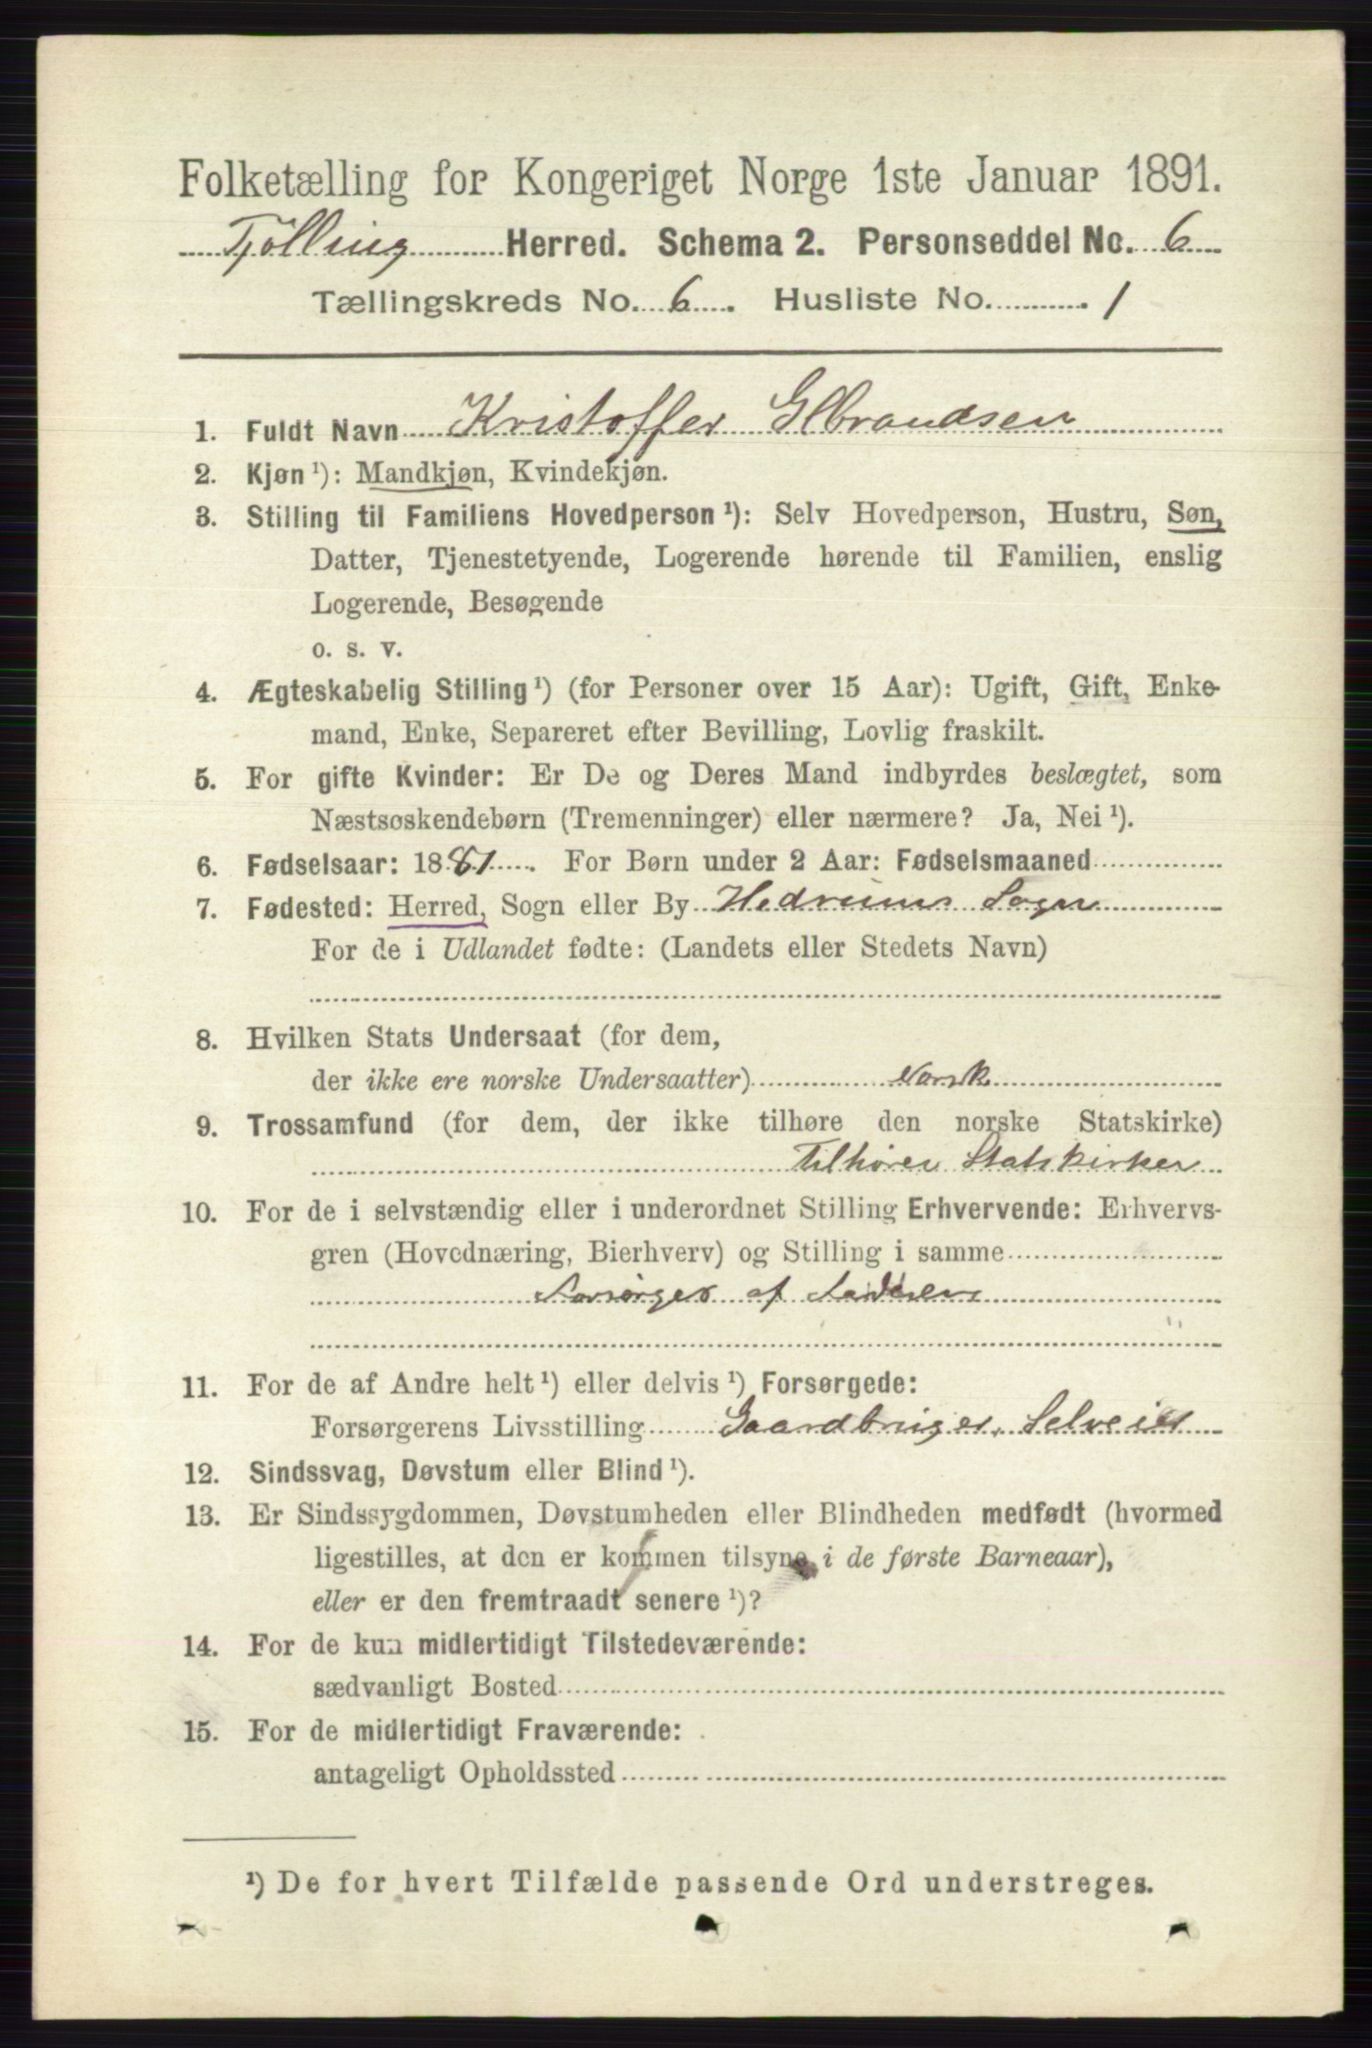 Folketælling for Kongeriget Norge 1ste Januar 1891.
Tjølling Herred. Schema 2. Personseddel No. 6
Tællingskreds No. 6. Husliste No. 1
1. Fuldt Navn Kristoffer Glbrandsen
2. Kjøn ¹): Mandkjøn, Kvindekjøn.
3. Stilling til Familiens Hovedperson ¹): Selv Hovedperson, Hustru, Søn,
Datter, Tjenestetyende, Logerende hørende til Familien, enslig
Logerende, Besøgende
o. s. v.
4. Ægteskabelig Stilling ¹) (for Personer over 15 Aar): Ugift, Gift, Enke-
mand, Enke, Separeret efter Bevilling, Lovlig fraskilt.
5. For gifte Kvinder: Er De og Deres Mand indbyrdes beslægtet, som
Næstsøskendebørn (Tremenninger) eller nærmere? Ja, Nei ¹).
6. Fødselsaar: 1881. For Børn under 2 Aar: Fødselsmaaned
7. Fødested: Herred, Sogn eller By Hedrums Sogn
For de i Udlandet fødte: (Landets eller Stedets Navn)
8. Hvilken Stats Undersaat (for dem,
der ikke ere norske Undersaatter) Norsk
9. Trossamfund (for dem, der ikke tilhøre den norske Statskirke)
Tilhører Statskirken
10. For de i selvstændig eller i underordnet Stilling Erhvervende: Erhvervs-
gren (Hovednæring, Bierhverv) og Stilling i samme
Forsørges af Faderen
11. For de af Andre helt ¹) eller delvis ¹) Forsørgede:
Forsørgerens Livsstilling Gaardbruger, Selveier
12. Sindssvag, Døvstum eller Blind ¹).
13. Er Sindssygdommen, Døvstumheden eller Blindheden medfødt (hvormed
ligestilles, at den er kommen tilsyne i de første Barneaar),
eller er den fremtraadt senere ¹)?
14. For de kun midlertidigt Tilstedeværende:
sædvanligt Bosted
15. For de midlertidigt Fraværende:
antageligt Opholdssted
¹) De for hvert Tilfælde passende Ord understreges.